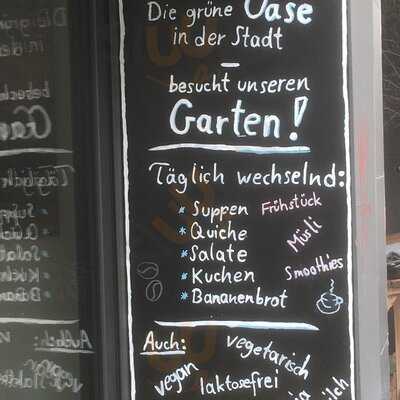 Die grüne Oase
in der Stadt
besucht unseren
Garten!
Täglich wechselnd:
* Suppen Frühstück
* Quiche Müsli
* Salate
* Kuchen Smoothies
* Bananenbrot
Auch: vegetarisch
vegan laktosefrei